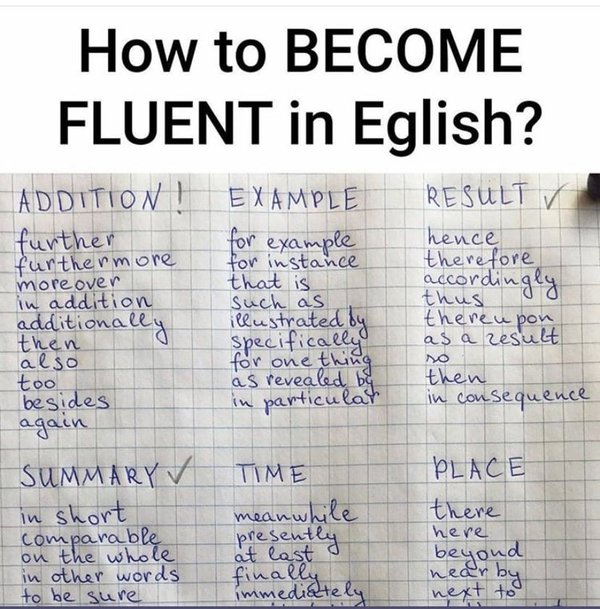 How to BECOME
FLUENT in Eglish?
ADDITION !
further
furthermore
moreover
in addition
additionally
then
also
too
besides
again
EXAMPLE
for example
for instance
that is
such as
illustrated by
specifically
for one thing
as revealed by
in particular
RESULT ✓
hence
therefore
accordingly
thus
thereupon
as a result
so
then
in consequence
SUMMARY ✓
in short
comparable
on the whole
in other words
to be sure
TIME
meanwhile
presently
at last
finally
immediately
PLACE
there
here
beyond
near by
next to